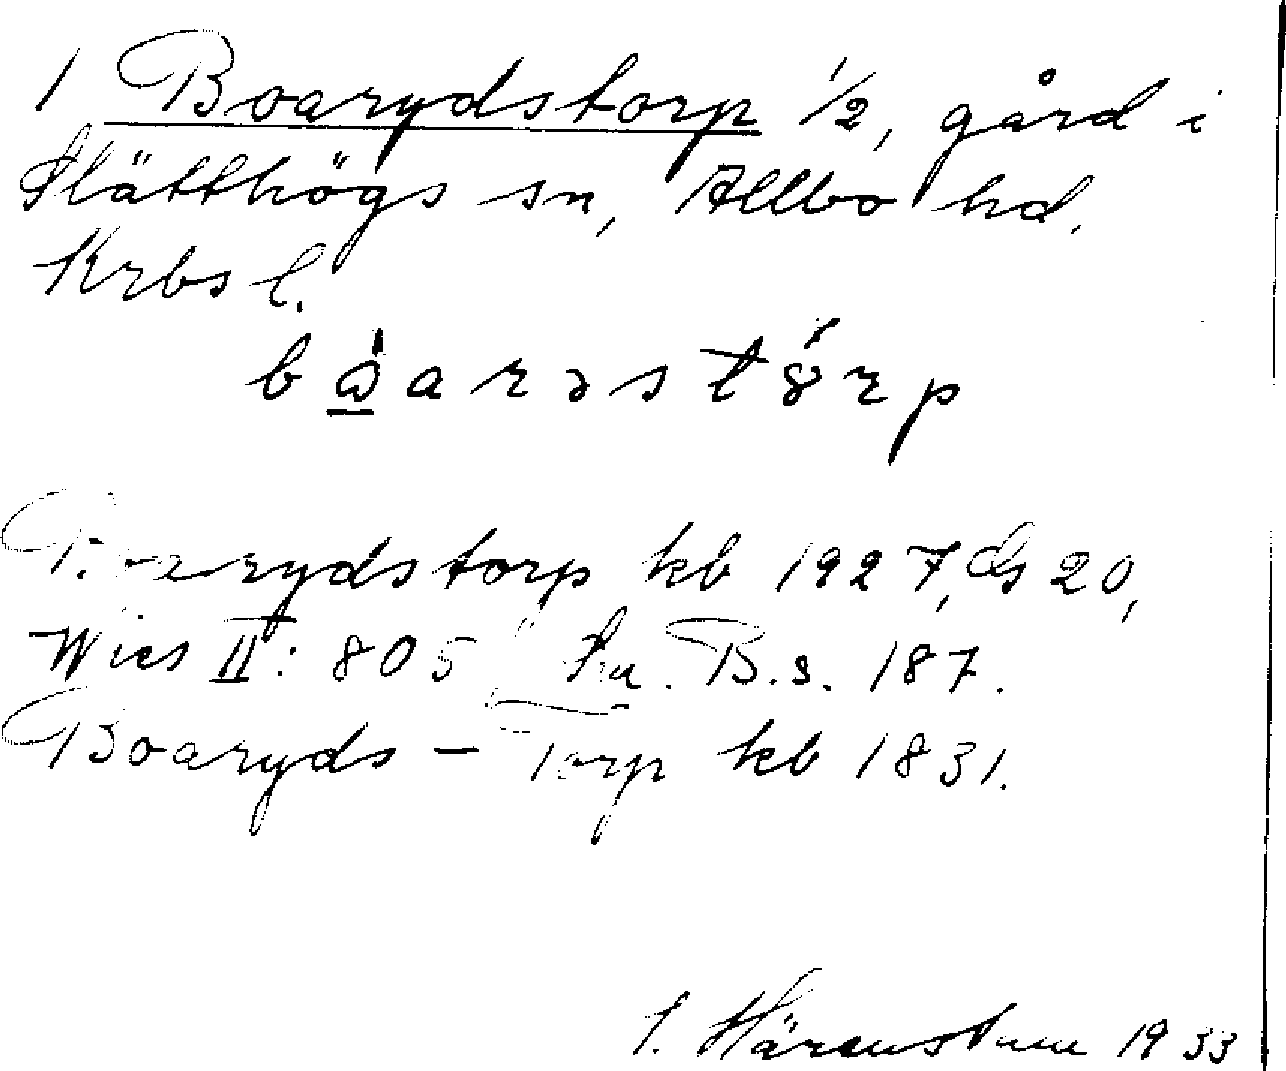 1 Boarydstorp 1/2, gård i
Slätthögs sn, Allbo hd.
Krbs l.
bo̱̍arəstórp
Boarydstorp kb 1927, Gs 20,
Wies II: 805 Sm. B. s. 187.
Boaryds - Torp kb 1831.
S. Härenstam 1933